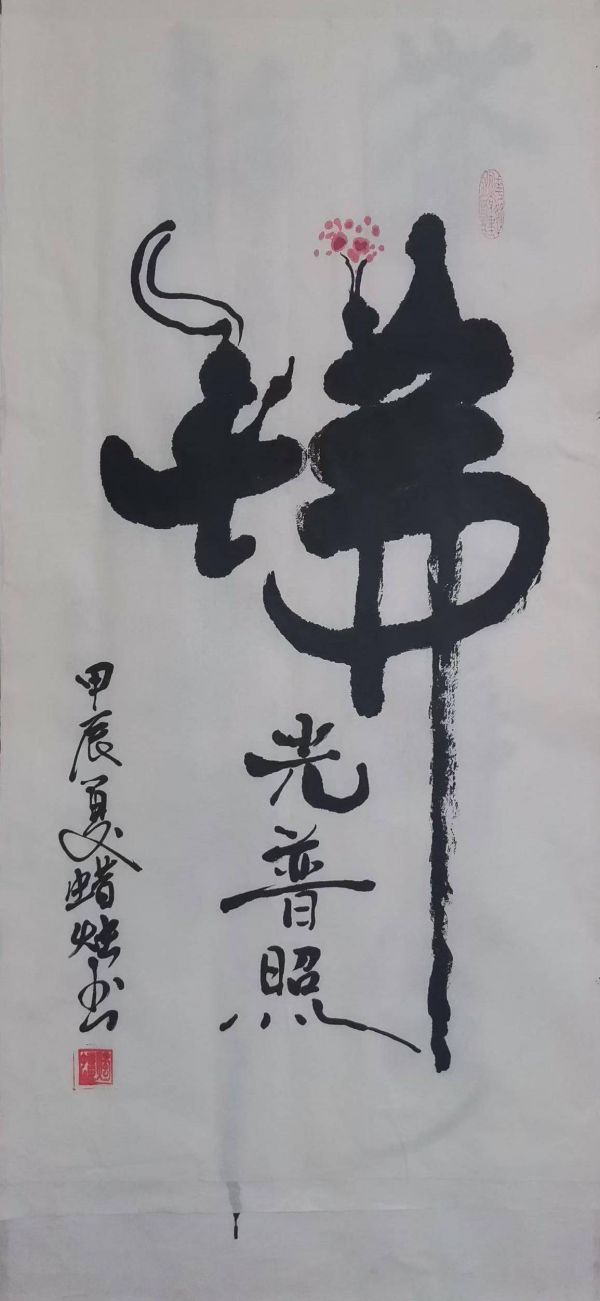 佛
光普照
甲辰夏蜡烛书